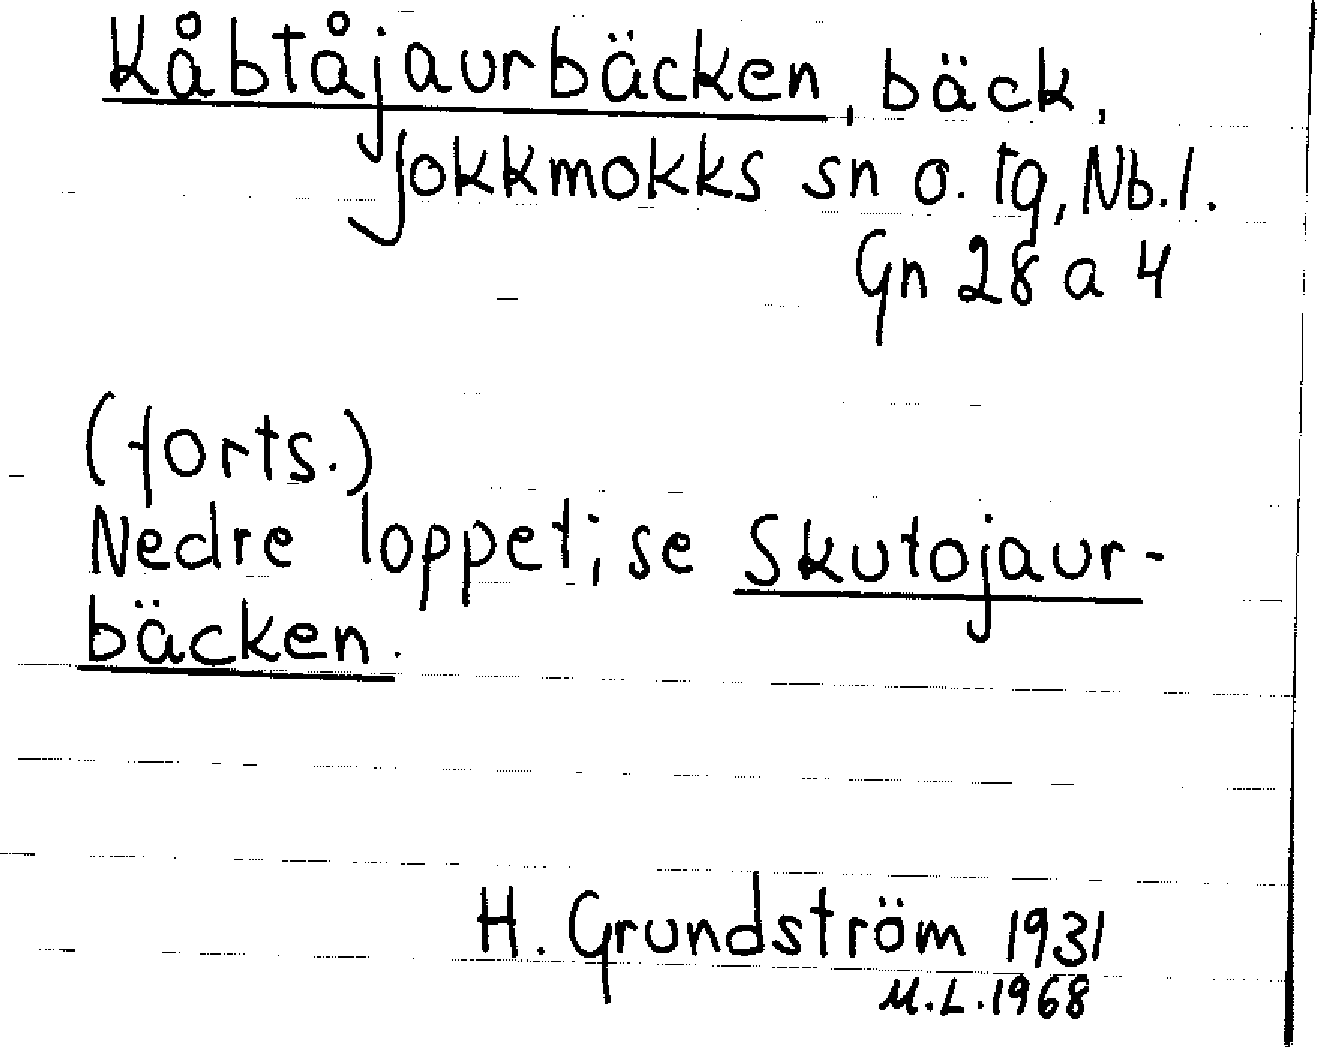 Kåbtåjaurbäcken, bäck,
Jokkmokks sn o. tg, Nb.l.
Gn 28 a 4
(forts.)
Nedre loppet; se Skutojaur-
bäcken.
H. Grundström 1931
M.L.1968